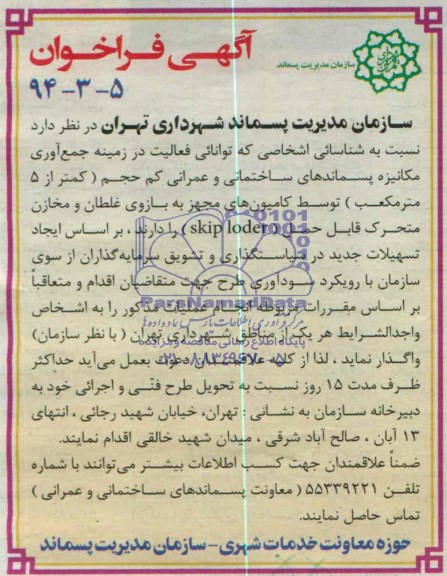 آگهی فراخوان
سازمان مدیریت پسماند
۹۴-۳-۵
سازمان مدیریت پسماند شهرداری تهران در نظر دارد
نسبت به شناسائی اشخاصی که توانائی فعالیت در زمینه جمع‌آوری
مکانیزه پسماندهای ساختمانی و عمرانی کم حجم ( کمتر از ۵
مترمکعب ) توسط کامیون‌های مجهز به بازوی غلطان و مخازن
متحرک قابل حمل ( skip loder ) را دارند ، بر اساس ایجاد
تسهیلات جدید در سیاستگذاری و تشویق سرمایه‌گذاران از سوی
سازمان با رویکرد سودآوری طرح جهت متقاضیان اقدام و متعاقباً
بر اساس مقررات مربوطه عملیات مذکور را به اشخاص
واجدالشرایط هر یک از مناطق شهرداری تهران ( با نظر سازمان)
واگذار نماید ، لذا از کلیه علاقمندان دعوت بعمل می‌آید حداکثر
ظرف مدت ۱۵ روز نسبت به تحویل طرح فنّی و اجرائی خود به
دبیرخانه سازمان به نشانی : تهران، خیابان شهید رجائی ، انتهای
۱۳ آبان ، صالح آباد شرقی ، میدان شهید خالقی اقدام نمایند.
ضمناً علاقمندان جهت کسب اطلاعات بیشتر می‌توانند با شماره
تلفن ۵۵۳۳۹۲۲۱ ( معاونت پسماندهای ساختمانی و عمرانی )
تماس حاصل نمایند.
حوزه معاونت خدمات شهری – سازمان مدیریت پسماند
ParsNamadData
پایگاه اطلاع رسانی مناقصه و مزایده